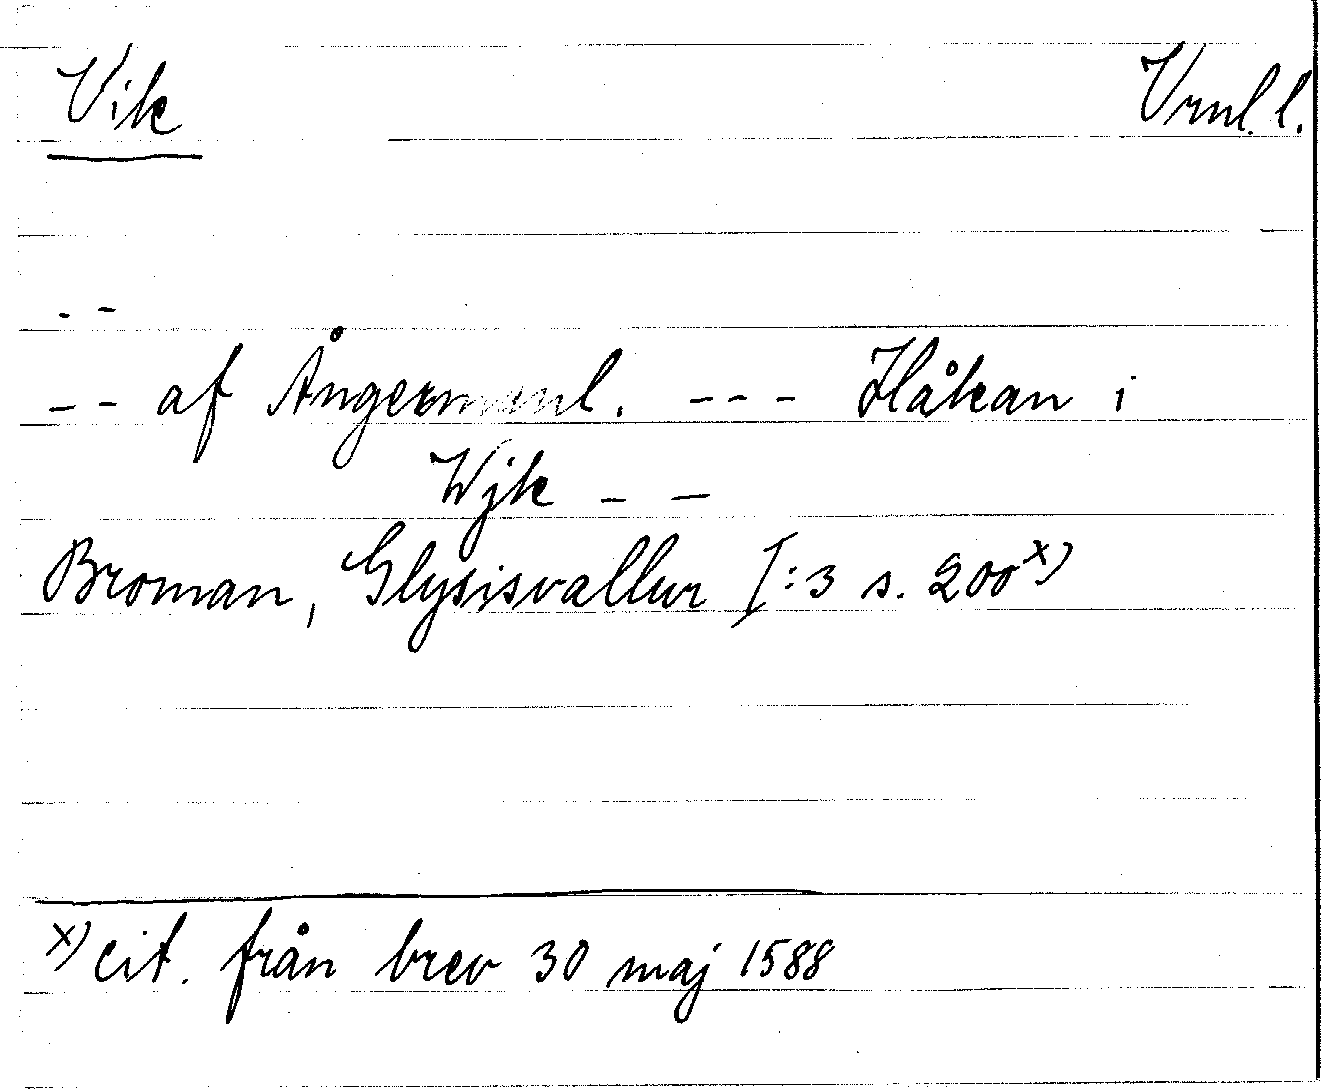 Vik Vrml. l.
- -
- - af Ångermanl. - - - Håkan i
Wjk - -
Broman, Glysisvallur I:3 s. 200x)
x) cit. från brev 30 maj 1588